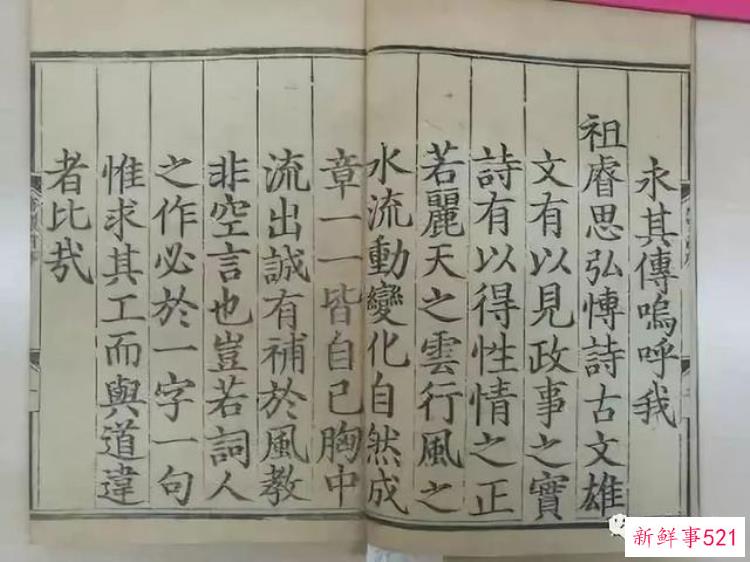 永其傳嗚呼我
祖睿思弘愽詩古文雄
文有以見政事之實
詩有以得性情之正
若麗天之雲行風之
水流動變化自然成
章一一皆自己胸中
流出誠有補於風教
非空言也豈若詞人
之作必於一字一句
惟求其工而與道違
者比㢤
新鲜事521